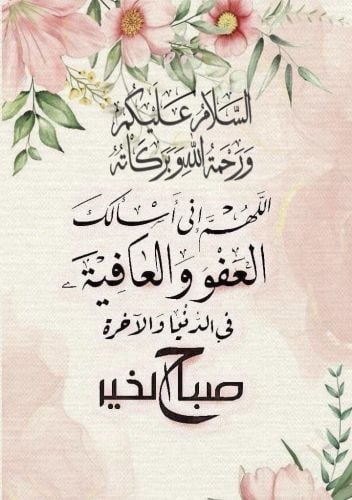 السَّلَامُ عَلَيْكُم
وَرَحْمَةُ اللهِ وَبَرَكَاتُهُ
اللَّهُمَّ إنى أسألك
العفو والعافية
في الدنيا والآخرة
صباح الخير